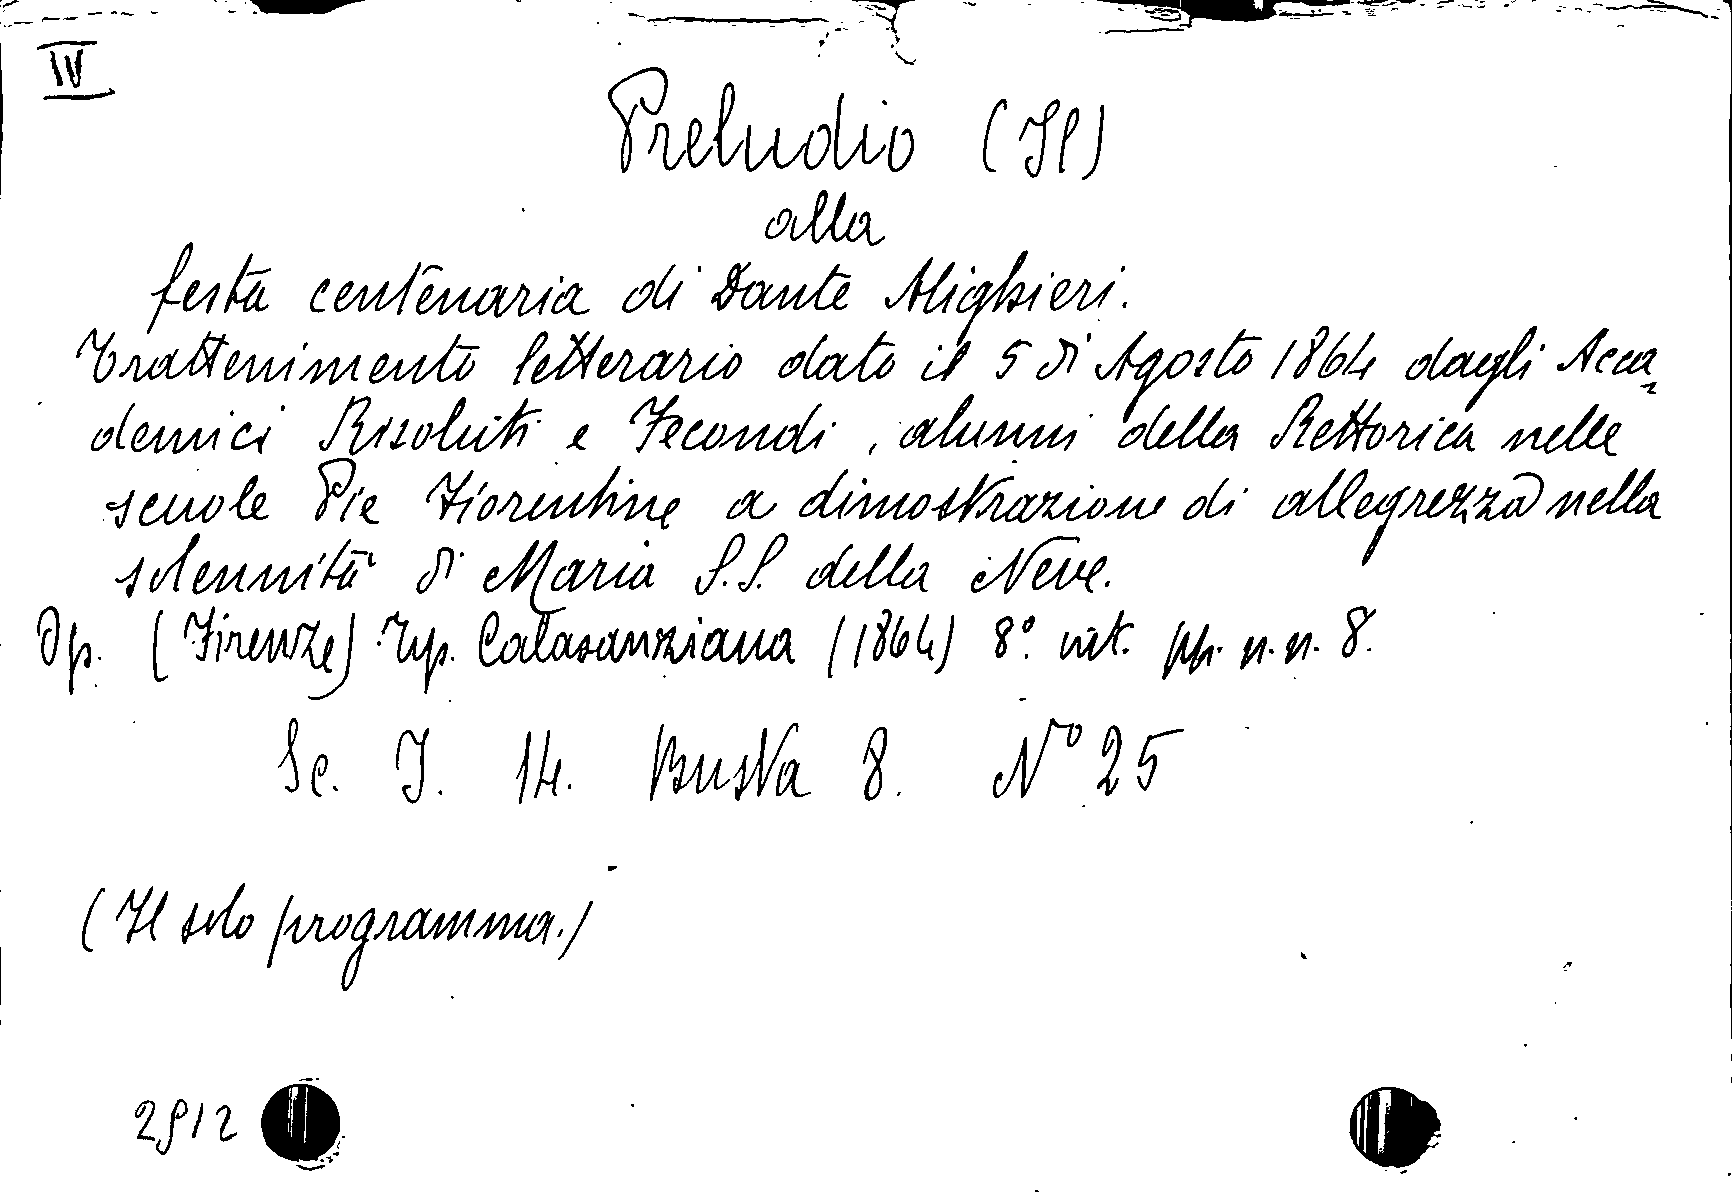 IV
Preludio (Il)
alla
festa centenaria di Dante Alighieri.
Trattenimento letterario dato il 5 di Agosto 1864 dagli Acca=
demici Risoluti e Fecondi, alunni della Rettorica nelle
scuole Pie Fiorentine a dimostrazione di allegrezza nella
solennità di Maria S.S. della Neve.
Op. (Firenze) Tip. Calasanziana (1864) 8º. int. pp. n.n. 8.
Sc. I. 14. Busta 8. Nº 25
(Il solo programma.)
2912